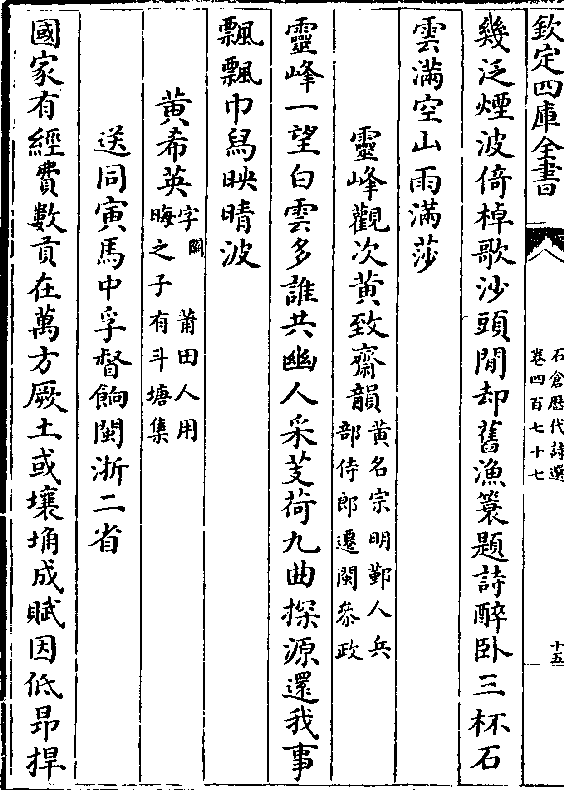 欽定四庫全書
石倉歴代詩選
卷四百七十七
十五
幾泛煙波倚棹歌沙頭閒却舊漁簑題詩醉卧三杯石
雲滿空山雨滿莎
靈峰觀次黄致齋韻黄名宗明鄞人兵
部侍郎遷閩叅政
靈峰一望白雲多誰共幽人采芰荷九曲探源還我事
飄飄巾舄映晴波
黄希英字闕莆田人用
晦之子有斗塘集
送同寅馬中孚督餉閩浙二省
國家有經費數貢在萬方厥土或壤埆成賦因低昻捍